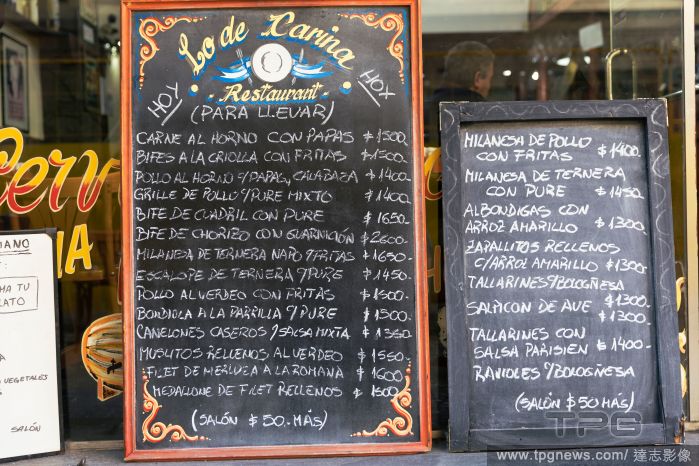 Lo de Cariña
Restaurant
HOY
HOY
(PARA LLEVAR)
CARNE AL HORNO CON PAPAS $1500
BIFES A LA CRIOLLA CON FRITAS $1500
POLLO AL HORNO C/PAPAS, CALABAZA $1400
GRILLE DE POLLO C/PURE MIXTO $1400
BIFE DE CUADRIL CON PURE $1650
BIFE DE CHORIZO CON GUARNICIÓN $2600-
MILANESA DE TERNERA NAPO C/FRITAS $1650-
ESCALOPE DE TERNERA C/PURE $1450-
POLLO AL VERDEO CON FRITAS $1500
BONDIOLA A LA PARRILLA C/PURE $1500
CANELONES CASEROS C/SALSA MIXTA $1350
MUSLITOS RELLENOS AL VERDEO $1550
FILET DE MERLUZA A LA ROMANA $1600
MEDALLONE DE FILET RELLENOS $1500
(SALÓN $50.MÁS)
MILANESA DE POLLO
CON FRITAS $1400-
MILANESA DE TERNERA
CON PURE $1450-
ALBONDIGAS CON
ARROZ AMARILLO $1300
ZAPALLITOS RELLENOS
C/ARROZ AMARILLO $1300-
TALLARINES C/BOLOGÑESA
$1300-
SALPICON DE AVE $1300-
TALLARINES CON
SALSA PARISIEN $1400-
RAVIOLES C/BOLOGÑESA
(SALÓN $50 MÁS)
Cerv
IANO
HA TU
LATO
VEGETALES
SALÓN
TPG
www.tpgnews.com/ 達志影像